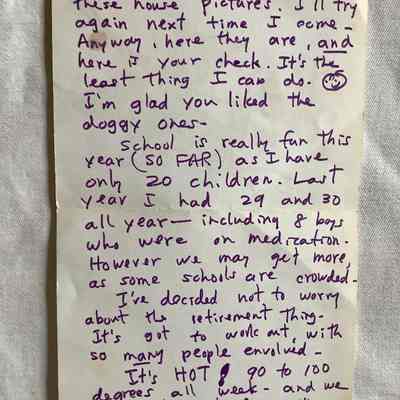 these house pictures. I'll try
again next time I come-
Anyway, here they are, and
here is your check. It's the
least thing I can do.
I'm glad you liked the
doggy ones-
School is really fun this
year (SO FAR) as I have
only 20 children. Last
year I had 29 and 30
all year— including 8 boys
who were on medication.
However we may get more,
as some schools are crowded-
I've decided not to worry
about the retirement thing-
It's got to work out, with
so many people envolved-
It's HOT! 90 to 100
degrees all week- and we